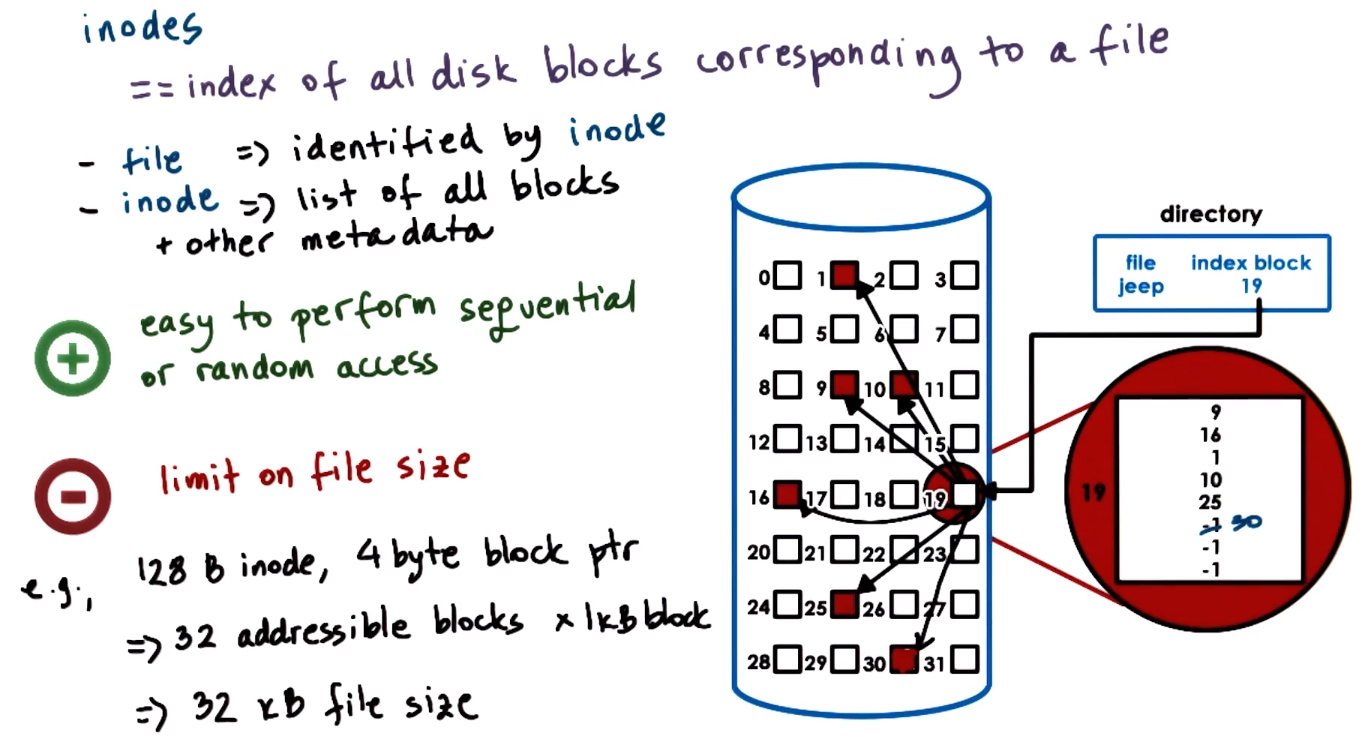 inodes
== index of all disk blocks corresponding to a file
- file => identified by inode
- inode => list of all blocks
+ other metadata
+
easy to perform sequential
or random access
-
limit on file size
e.g., 128 B inode, 4 byte block ptr
=> 32 addressible blocks x 1kB block
=> 32 kB file size
directory
file index block
jeep 19
0 1 2 3
4 5 6 7
8 9 10 11
12 13 14 15
16 17 18 19
20 21 22 23
24 25 26 27
28 29 30 31
19
9
16
1
10
25
-1 30
-1
-1